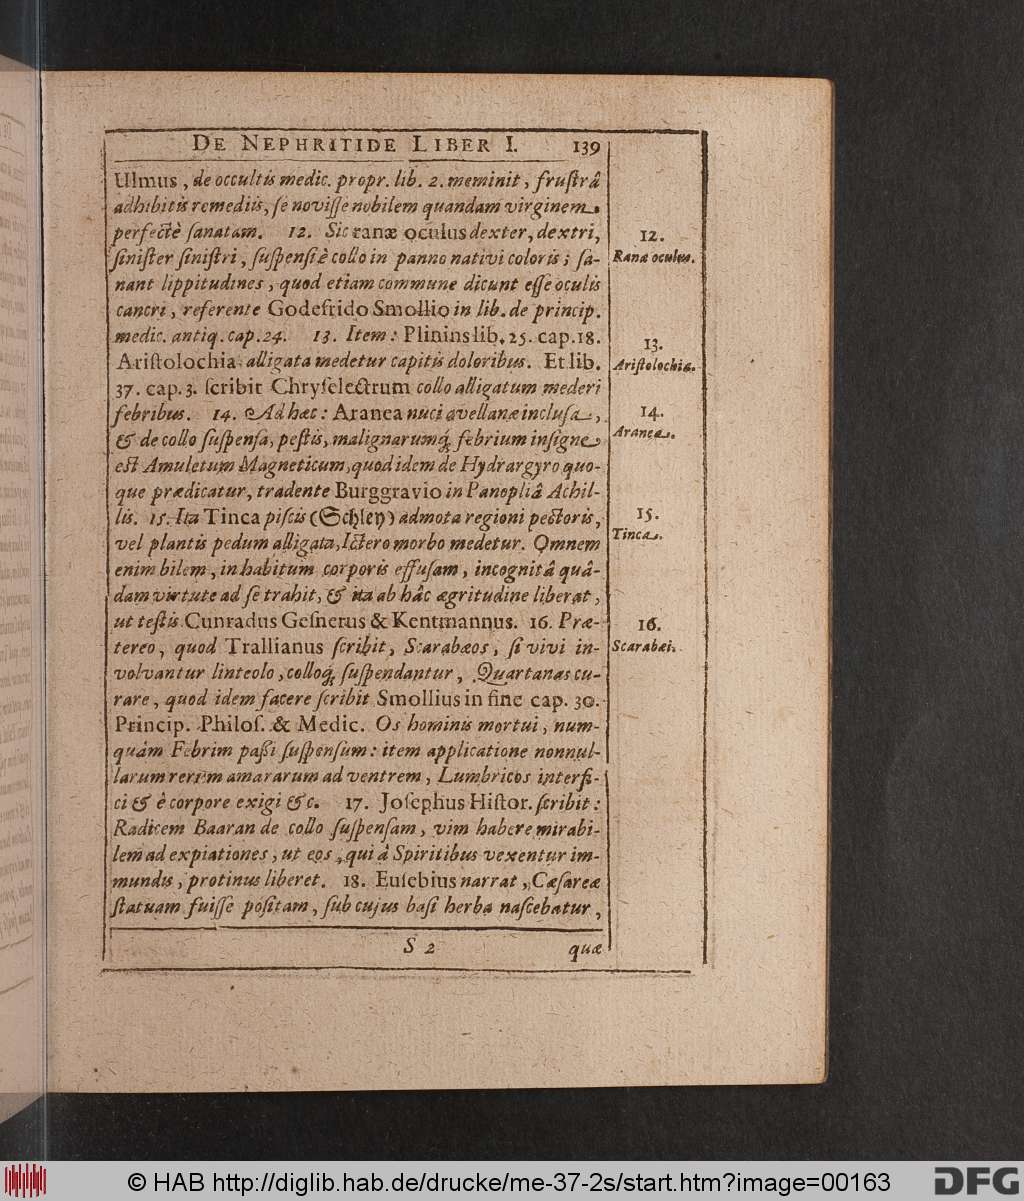 DE NEPHRITIDE LIBER I. 139
Ulmus, de occultis medic. propr. lib. 2. meminit, frustrâ
adhibitis remediis, se novisse nobilem quandam virginem
perfectè sanatam. 12. Sic ranæ oculus dexter, dextri,
sinister sinistri, suspensi è collo in panno nativi coloris; sa-
nant lippitudines, quod etiam commune dicunt esse oculis
cancri, referente Godefrido Smollio in lib. de princip.
medic. antiq. cap. 24. 13. Item: Plinius lib. 25. cap. 18.
Aristolochia alligata medetur capitis doloribus. Et lib.
37. cap. 3. scribit Chryselectrum collo alligatum mederi
febribus. 14. Ad hæc: Aranea nuci avellanæ inclusa,
& de collo suspensa, pestis, malignarumq́; febrium insigne
est Amuletum Magneticum, quod idem de Hydrargyro quo-
que prædicatur, tradente Burggravio in Panopliâ Achil-
lis. 15. Ita Tinca piscis (Schley) admota regioni pectoris,
vel plantis pedum alligata, Ictero morbo medetur. Omnem
enim bilem, in habitum corporis effusam, incognitâ quâ-
dam virtute ad se trahit, & ita ab hâc ægritudine liberat,
ut testis Cunradus Gesnerus & Kentmannus. 16. Præ-
tereo, quod Trallianus scribit, Scarabæos, si vivi in-
volvantur linteolo, colloq́; suspendantur, Quartanas cu-
rare, quod idem facere scribit Smollius in fine cap. 30.
Princip. Philos. & Medic. Os hominis mortui, num-
quám Febrim passi suspensum: item applicatione nonnul-
larum rerum amararum ad ventrem, Lumbricos interfi-
ci & è corpore exigi &c. 17. Josephus Histor. scribit:
Radicem Baaran de collo suspensam, vim habere mirabi-
lem ad expiationes, ut eos, qui à Spiritibus vexentur im-
mundis, protinus liberet. 18. Eusebius narrat, Cæsareæ
statuam fuisse positam, sub cujus basi herba nascebatur,
S 2 quæ
12.
Ranæ oculus.
13.
Aristolochia.
14.
Aranea.
15.
Tinca.
16.
Scarabæi.
© HAB http://diglib.hab.de/drucke/me-37-2s/start.htm?image=00163
DFG